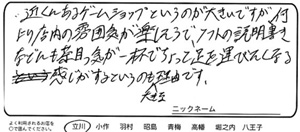 ・近くにあるゲームショップというのが大きいですが何
より店内の雰囲気が楽しそうで、ソフトの説明書き
なども茶目っ気が一杯でちょっと足を運びたくなる
感じがするというのも理由です。
大きな
ニックネーム
よく行かれるお店を
○で囲んでください。
立川 小作 羽村 昭島 青梅 高幡 堀之内 八王子